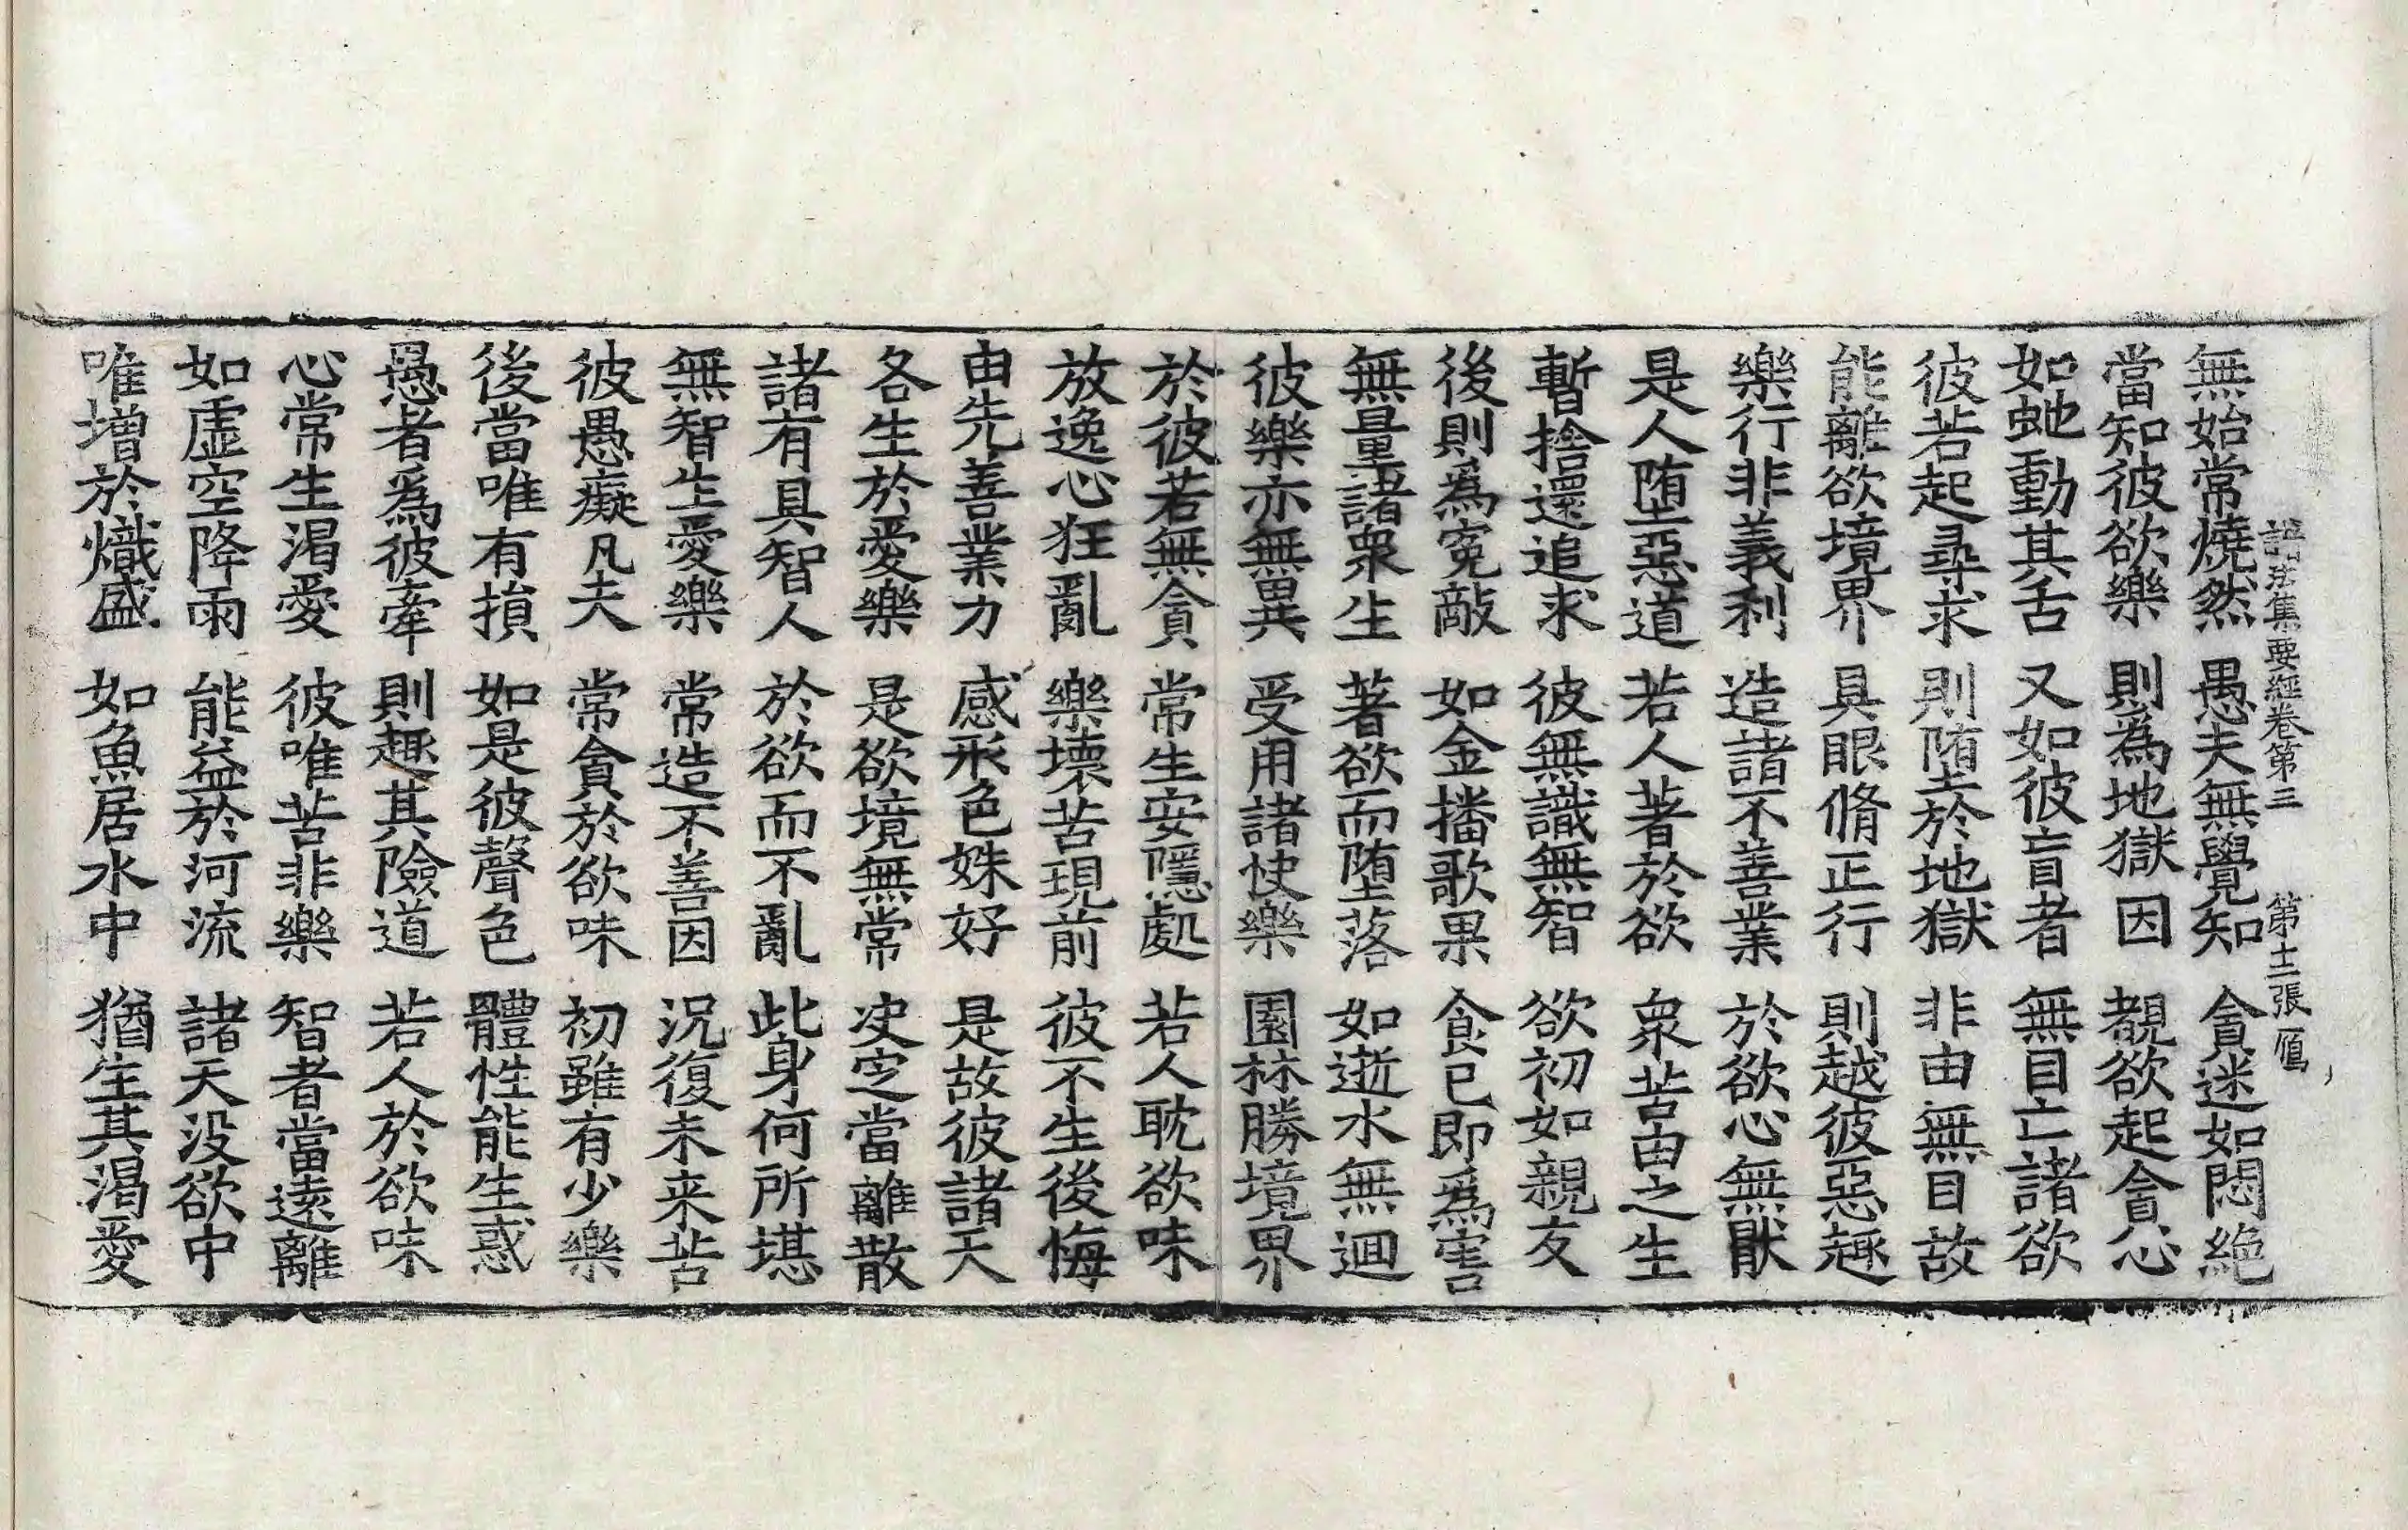 諸法集要經卷第三 第十二張 鴈
無始常燒然 愚夫無覺知 貪迷如悶絶
當知彼欲樂 則為地獄因 覩欲起貪心
如虵動其舌 又如彼盲者 無目亡諸欲
彼若起尋求 則堕於地獄 非由無目故
能離欲境界 具眼脩正行 則越彼惡趣
樂行非義利 造諸不善業 於欲心無猒
是人堕惡道 若人著於欲 衆苦由之生
暫捨還追求 彼無識無智 欲初如親友
後則為寃敵 如金播歌果 食已即為害
無量諸衆生 著欲而堕落 如逝水無迴
彼樂亦無異 受用諸快樂 園林勝境界
於彼若無貪 常生安隱處 若人耽欲味
放逸心狂亂 樂壞苦現前 彼不生後悔
由先善業力 感形色姝好 是故彼諸天
各生於愛樂 是欲境無常 决定當離散
諸有具智人 於欲而不亂 此身何所堪
無智生愛樂 常造不善因 况復未来苦
彼愚癡凡夫 常貪於欲味 初雖有少樂
後當唯有損 如是彼聲色 體性能生惑
愚者為彼牽 則趣其險道 若人於欲味
心常生渴愛 彼唯苦非樂 智者當遠離
如虛空降雨 能益於河流 諸天没欲中
唯增於熾盛 如魚居水中 猶生其渴愛